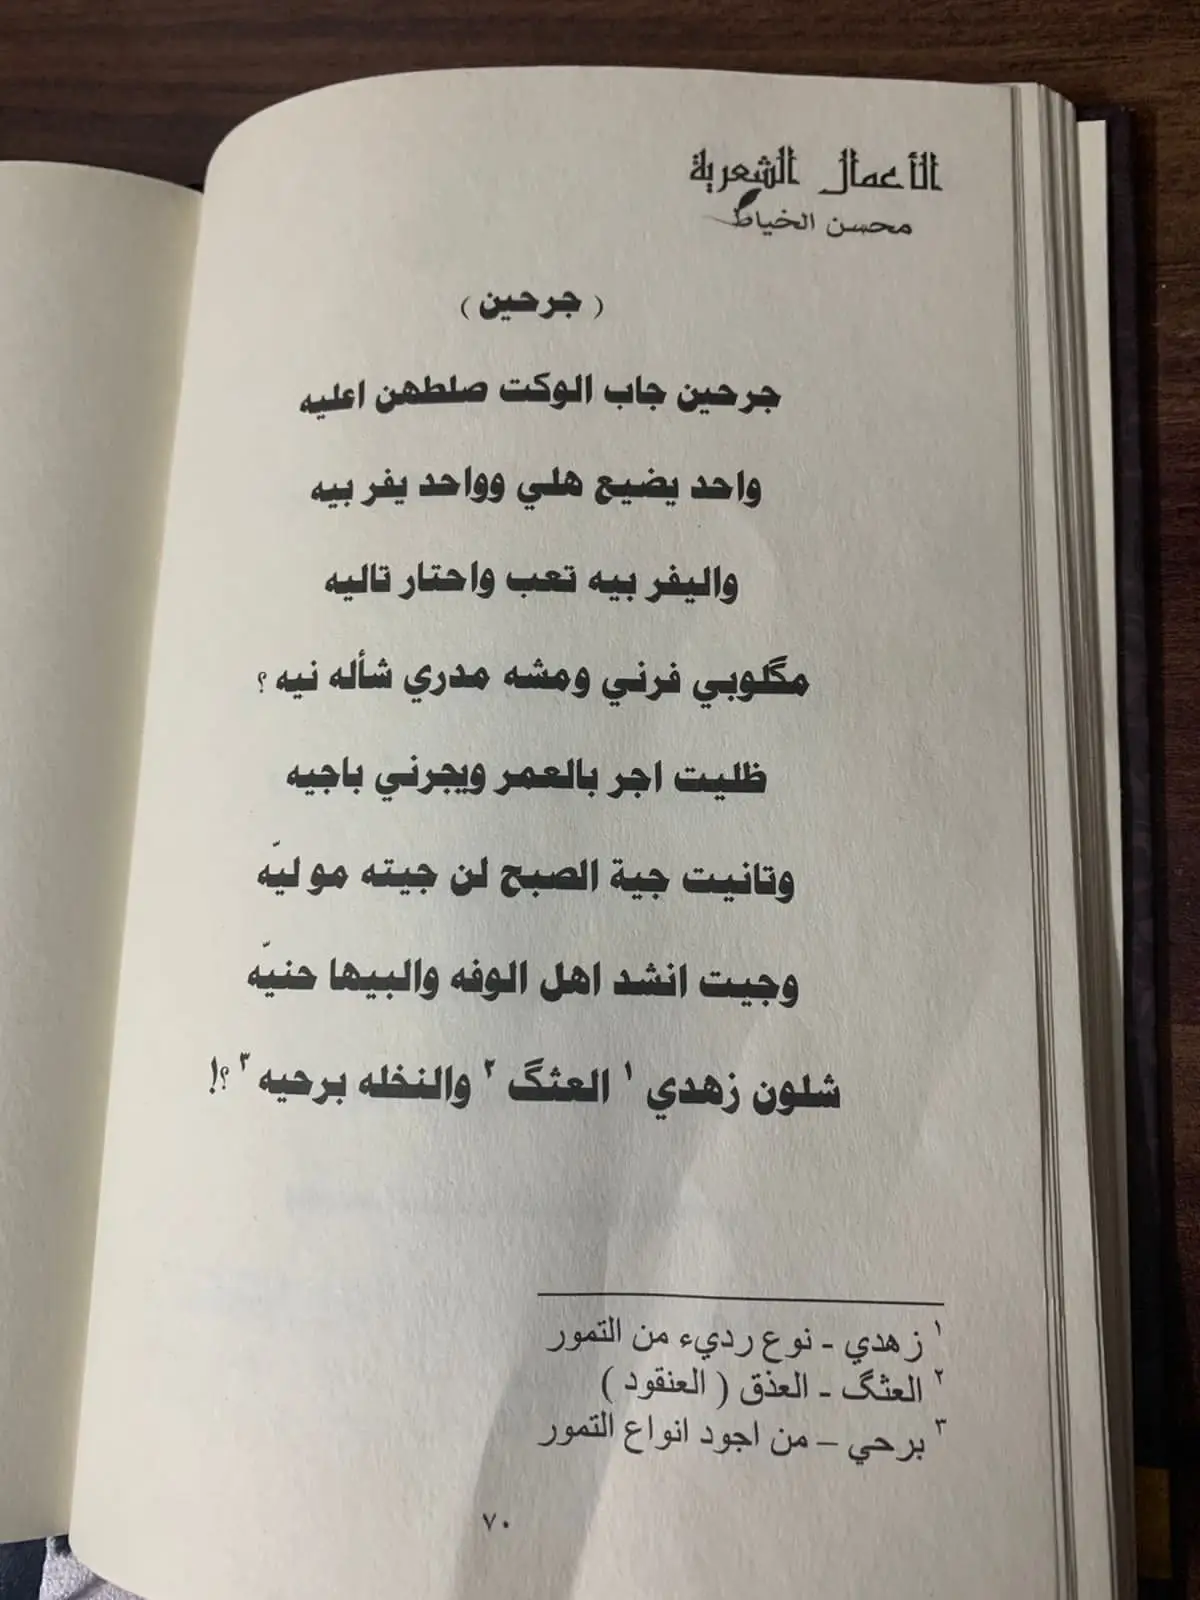 الأعمال الشعرية
محسن الخياط
( جرحين )
جرحين جاب الوكت صلطهن اعليه
واحد يضيع هلي وواحد يفر بيه
واليفر بيه تعب واحتار تاليه
مگلوبي فرني ومشه مدري شأله نيه ؟
ظليت اجر بالعمر ويجرني باجيه
وتانيت جية الصبح لن جيته مو ليّه
وجيت انشد اهل الوفه والبيها حنيّه
شلون زهدي ١ العثگ ٢ والنخله برحيه ٣ ؟!
١ زهدي - نوع رديء من التمور
٢ العثگ - العذق ( العنقود )
٣ برحي – من اجود انواع التمور
٧٠